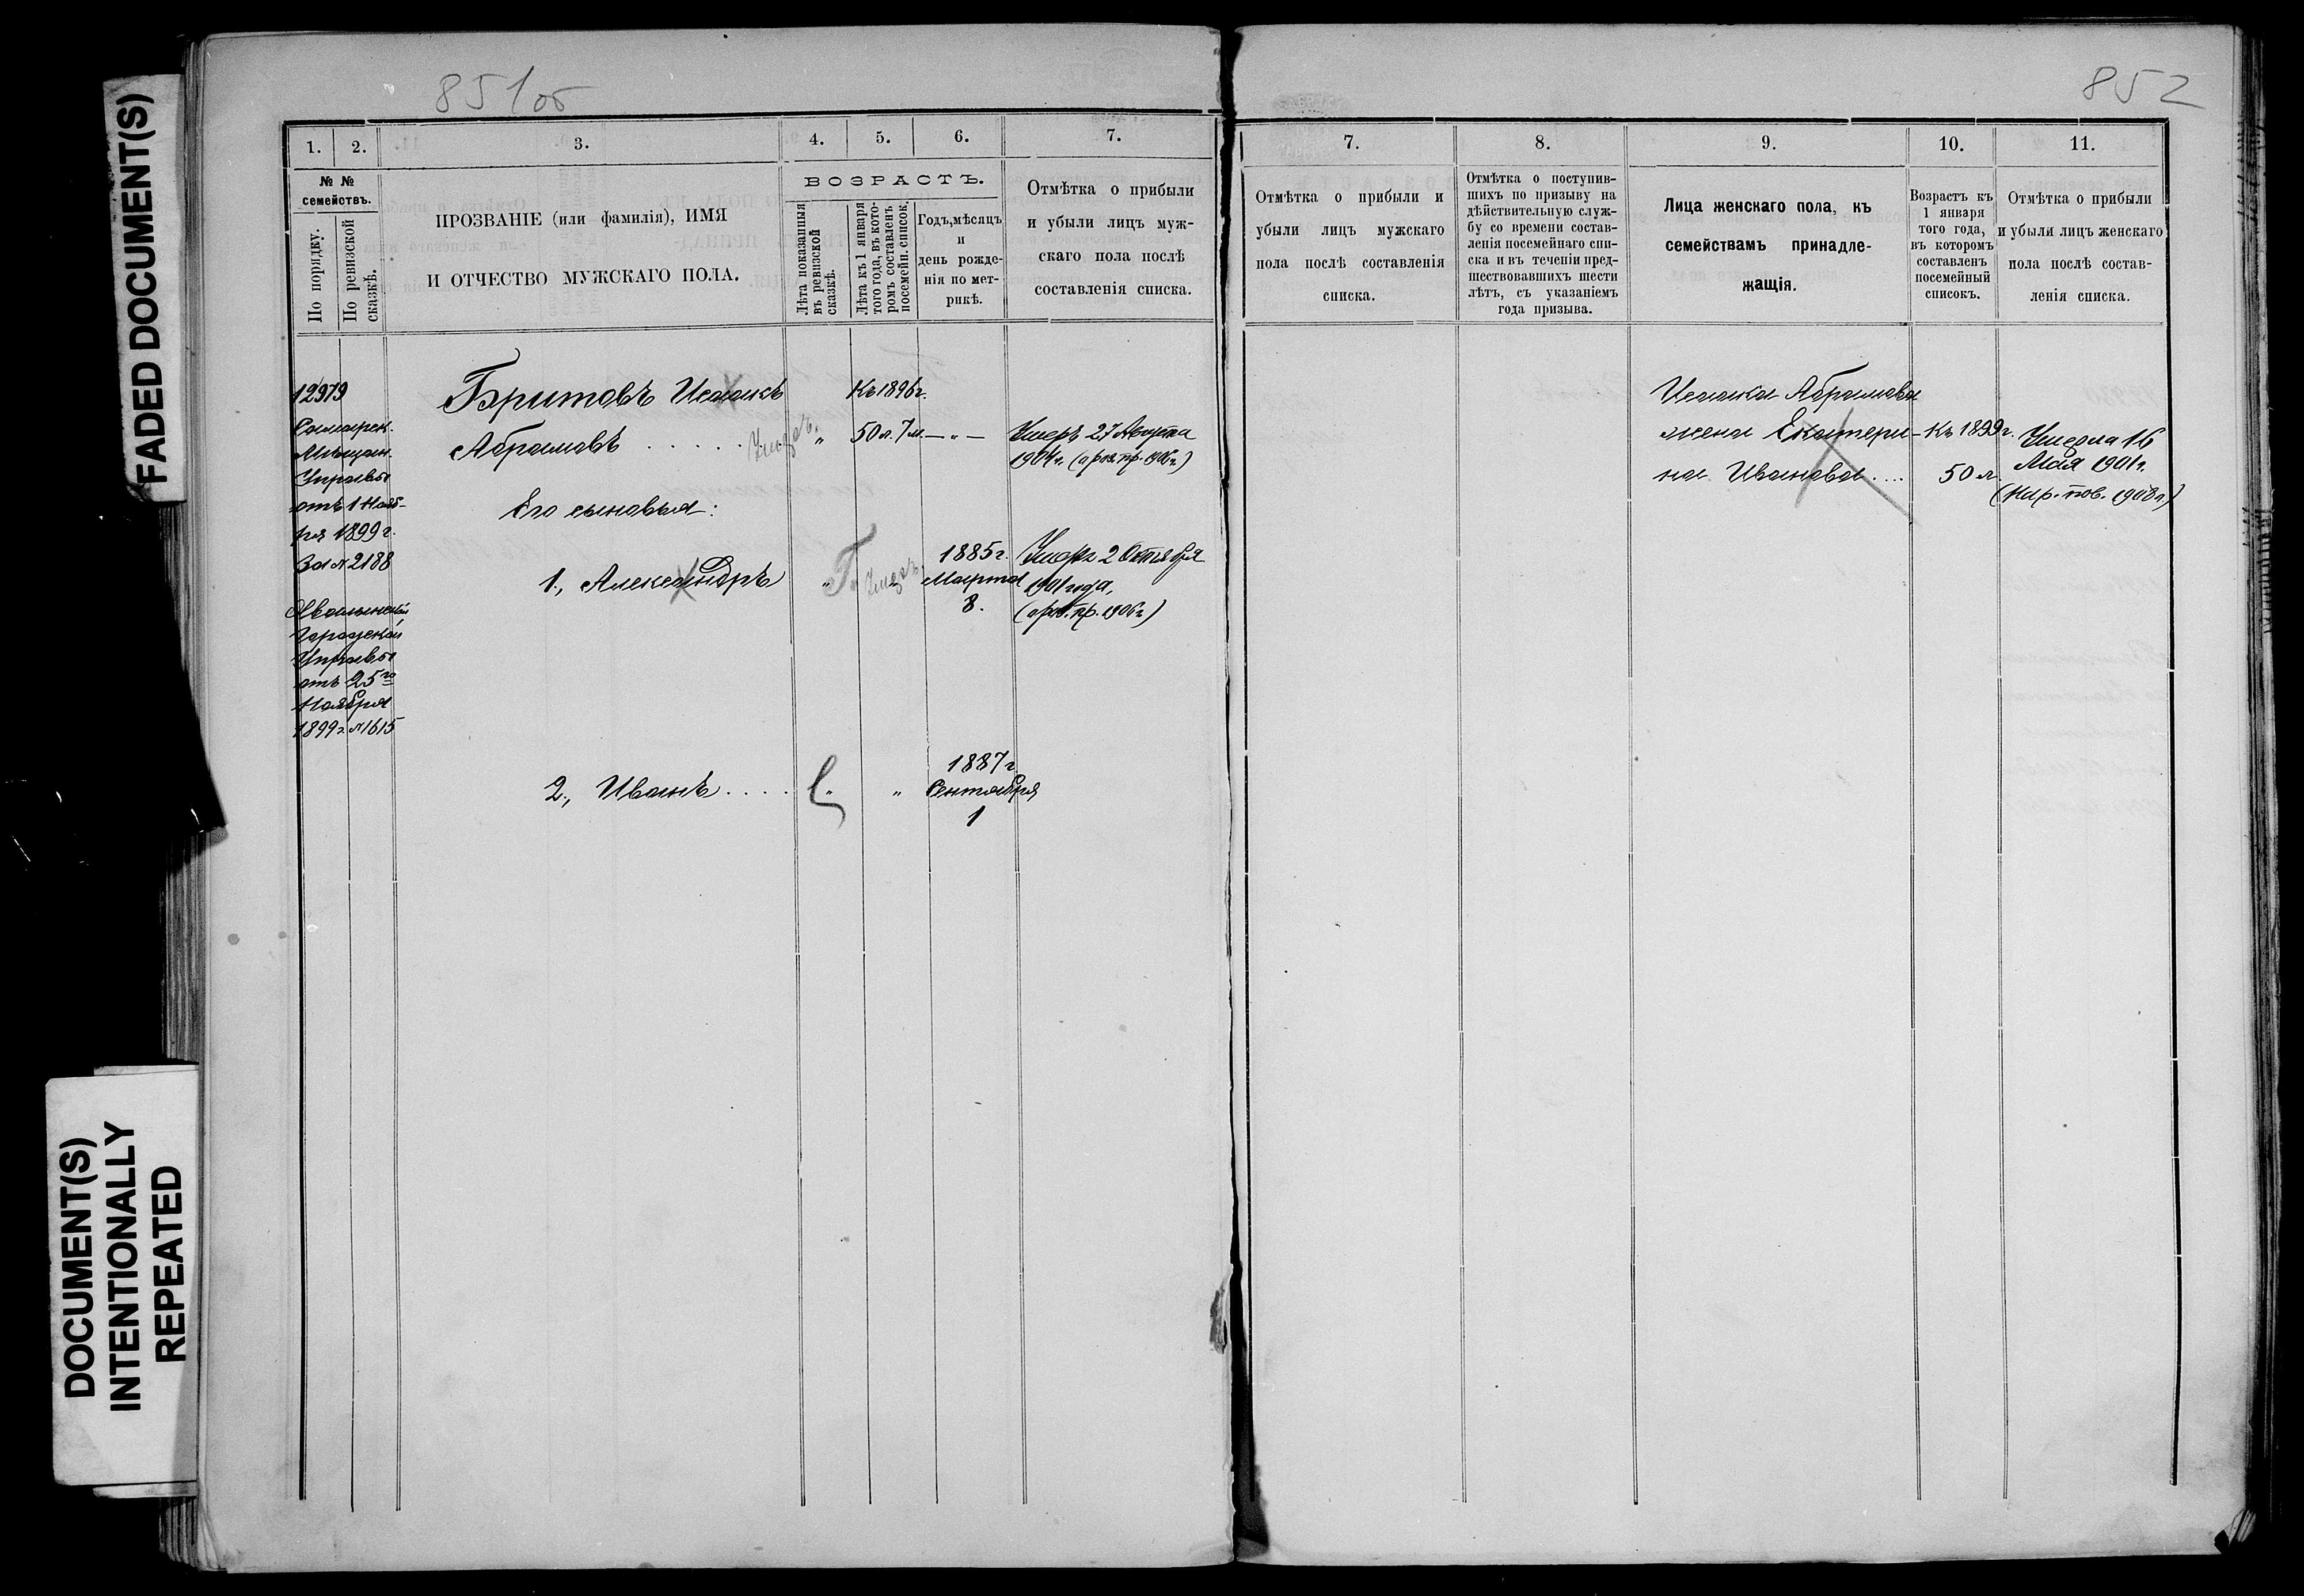 FADED DOCUMENT(S)
DOCUMENT(S)
INTENTIONALLY
REPEATED
851об
852
1. 2. 3. 4. 5. 6. 7.
№ №
семействъ.
По порядку.
По ревизской
сказкѣ.
ПРОЗВАНІЕ (или фамилія), ИМЯ
И ОТЧЕСТВО МУЖСКАГО ПОЛА.
ВОЗРАСТЪ.
Лѣта показанныя
въ ревизской
сказкѣ.
Лѣта къ 1 января
того года, въ кото-
ромъ составленъ
посемейн. список.
Годъ, мѣсяцъ
и
день рожде-
нія по мет-
рикѣ.
Отмѣтка о прибыли
и убыли лицъ муж-
скаго пола послѣ
составленія списка.
12979
Самарск.
Мѣщан.
Управы
отъ 1 Нояб-
ря 1899 г.
За № 2188
Хвалынской
Городской
Управы
отъ 25го
Ноября
1899 г. № 1615
Бритовъ Исаакъ
Абрамовъ . . . . .
Умеръ.
Къ 1896 г.
" 50 л. 7 м. — " —
Умеръ 27 Августа
1904 г.
Его сыновья:
1., Александръ
Умеръ.
1885 г.
Марта
8.
Умеръ 2 Октября
1901 года,
2., Иванъ . . . .
" "
1887 г.
Сентября
1
7. 8. 9. 10. 11.
Отмѣтка о прибыли и
убыли лицъ мужскаго
пола послѣ составленія
списка.
Отмѣтка о поступив-
шихъ по призыву на
дѣйствительную служ-
бу со времени состав-
ленія посемейнаго спи-
ска и въ теченіи пред-
шествовавшихъ шести
лѣтъ, съ указаніемъ
года призыва.
Лица женскаго пола, къ
семействамъ принадле-
жащія.
Возрастъ къ
1 января
того года,
въ которомъ
составленъ
посемейный
списокъ.
Отмѣтка о прибыли
и убыли лицъ женскаго
пола послѣ состав-
ленія списка.
Исаака Абрамова
жена Екатери-
на Иванова . . . .
Къ 1899 г.
50 л.
Умерла 16
Мая 1901 г.